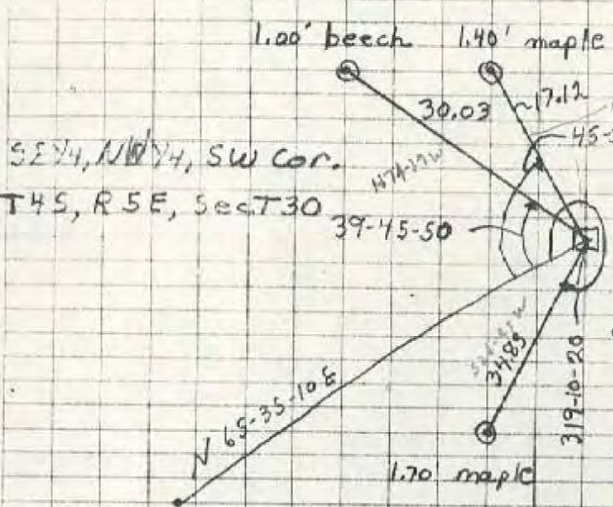 1.00' beech 1.40' maple
30.03
17.12
45-
SE1/4, NW1/4, SW Cor.
T4S, R5E, SecT30
N74-39W
39-45-50
34.89
319-10-20
N 65-35-10E
1.70' maple